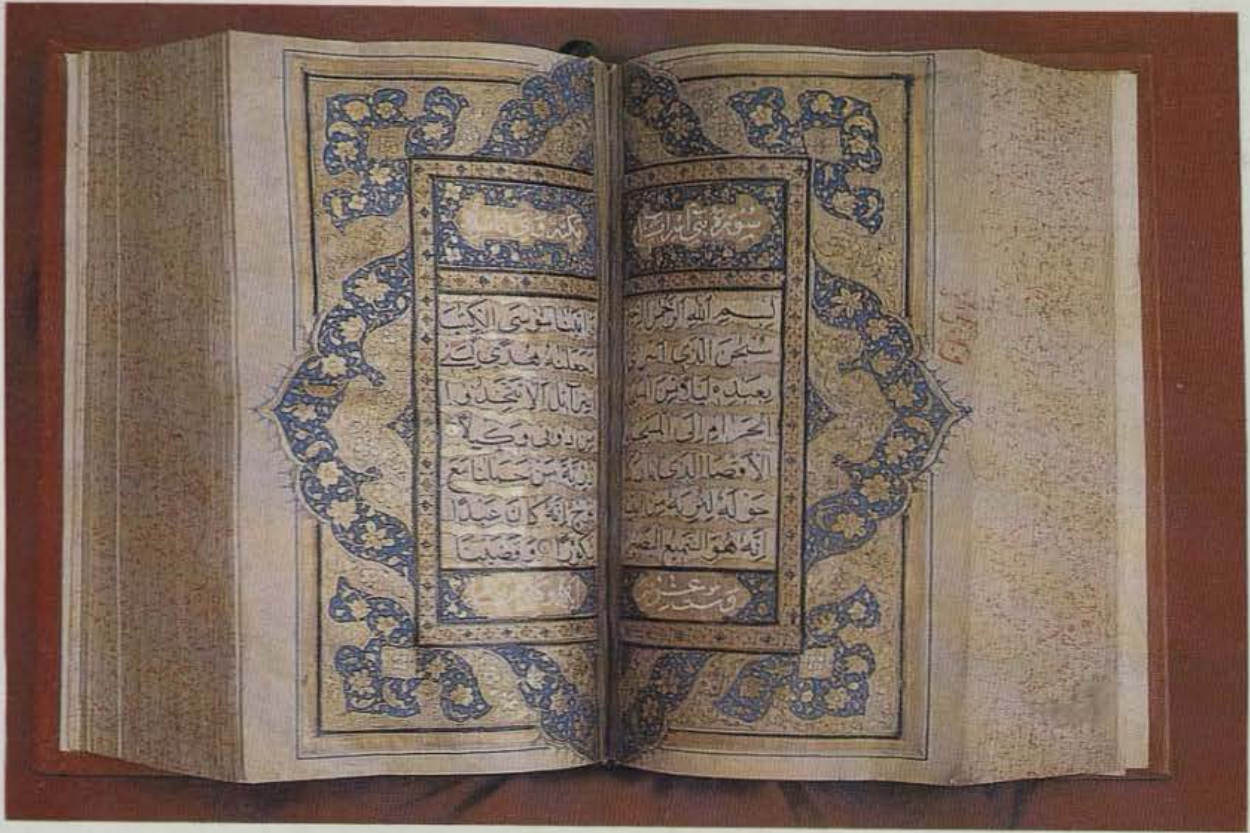 سورة بني اسرا
بسم الله الرحمن الر
سبحن الذي اسرى
بعبده ليلا من الم
الحرام الى المسجد
الاقصا الذي بارك
حوله لنريه من ايتنا
انه هو السميع البصير
اتينا موسى الكتب
وجعلنه هدى لبني
اسرائل الا تتخذوا
من دوني وكيلا
ذرية من حملنا مع
نوح انه كان عبدا
شكورا وقضينا